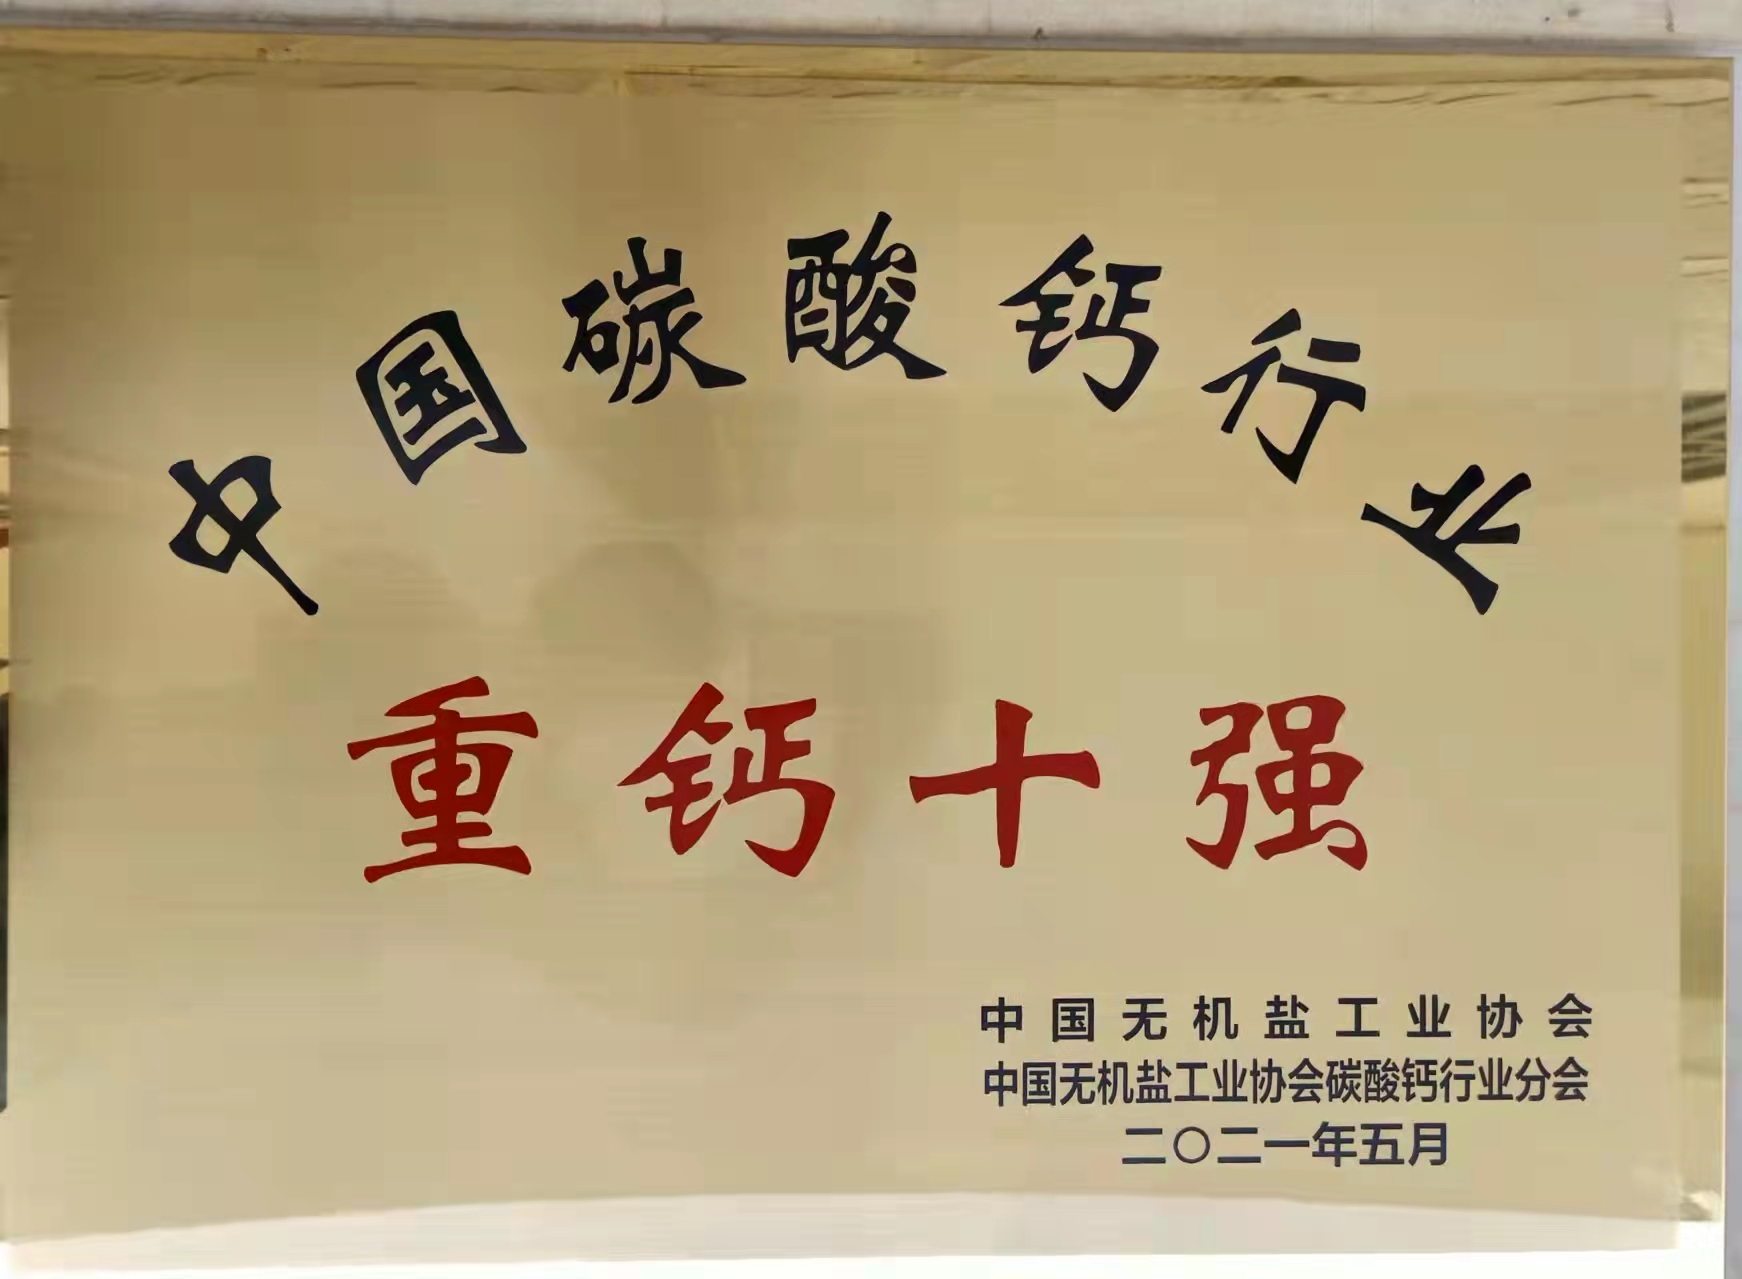 中国碳酸钙行业
重钙十强
中国无机盐工业协会
中国无机盐工业协会碳酸钙行业分会
二〇二一年五月